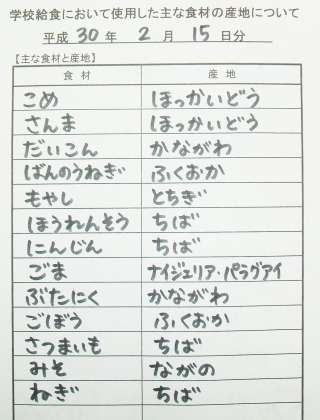 学校給食において使用した主な食材の産地について
平成 30 年 2 月 15 日分
【主な食材と産地】
食材 産地
こめ ほっかいどう
さんま ほっかいどう
だいこん かながわ
ばんのうねぎ ふくおか
もやし とちぎ
ほうれんそう ちば
にんじん ちば
ごま ナイジェリア・パラグアイ
ぶたにく かながわ
ごぼう ふくおか
さつまいも ちば
みそ ながの
ねぎ ちば